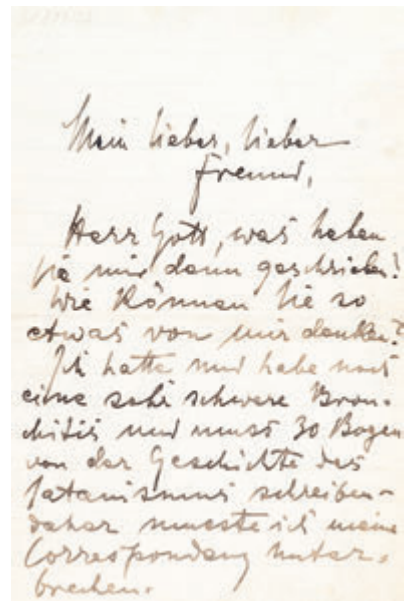 Mein lieber, lieber
Freund,
Herr Gott, was haben
Sie mir denn geschrieben?
Wie können Sie so
etwas von mir denken?
Ich hatte und habe noch
eine sehr schwere Bron-
chitis und muss 30 Bogen
von der Geschichte des
Satanismus schreiben -
daher musste ich meine
Correspondenz unter-
brechen.